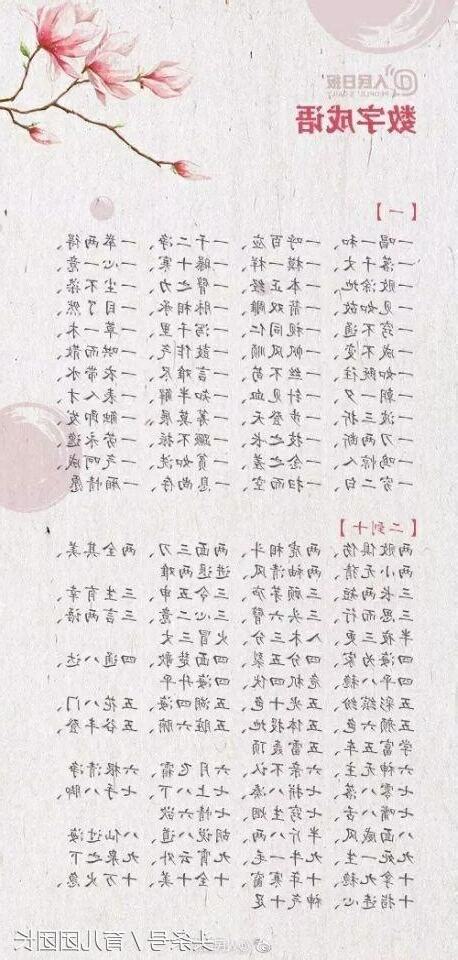 @人民日报
PEOPLE'S DAILY
数字成语
【一】
一唱一和、一呼百应、一干二净、一举两得、
一落千丈、一模一样、一曝十寒、一心一意、
一败涂地、一本正经、一臂之力、一尘不染、
一见如故、一箭双雕、一脉相承、一目了然、
一窍不通、一视同仁、一泻千里、一草一木、
一成不变、一帆风顺、一鼓作气、一哄而散、
一如既往、一丝不苟、一言难尽、一衣带水、
一朝一夕、一针见血、一知半解、一表人才、
一波三折、一步登天、一筹莫展、一触即发、
一刀两断、一技之长、一蹶不振、一劳永逸、
一鸣惊人、一念之差、一贫如洗、一气呵成、
一穷二白、一扫而空、一息尚存、一厢情愿
【二到十】
两败俱伤、两虎相斗、两面三刀、两全其美、
两小无猜、两袖清风、进退两难
三长两短、三顾茅庐、三令五申、三生有幸、
三思而行、三头六臂、三心二意、三言两语、
半夜三更、入木三分、火冒三丈
四海为家、四分五裂、四面楚歌、四通八达、
四平八稳、危机四伏、四海升平
五彩缤纷、五光十色、五湖四海、五花八门、
五颜六色、五体投地、五脏六腑、五谷丰登、
学富五车、五雷轰顶
六神无主、六亲不认、六月飞霜、六根清净
七零八落、七拼八凑、七上八下、七手八脚、
七嘴八舌、七窍生烟、七情六欲
八面威风、半斤八两、胡说八道、八仙过海
九死一生、九牛一毛、九霄云外、九泉之下
十拿九稳、十年寒窗、十全十美、十万火急、
十指连心、神气十足
@人民日报
头条号/育儿团团长